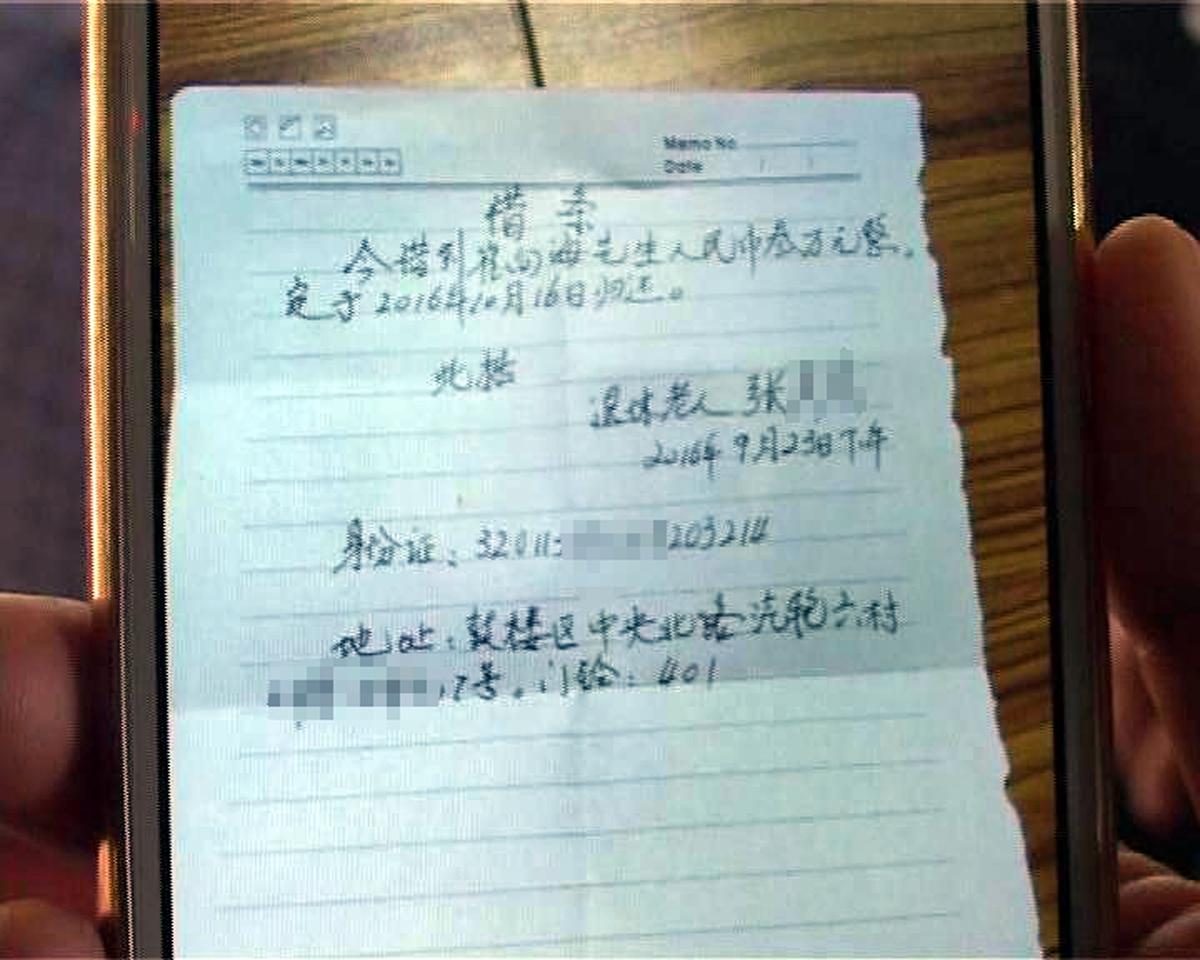 Memo No.
Date / /
借 条
今借到崔向海先生人民币叁万元整。
定于2016年10月16日归还。
此据
退休老人 张
2016年9月23日下午
身份证：320113 203214
地址：鼓楼区中央北路洗轮六村
17号。门铃：401